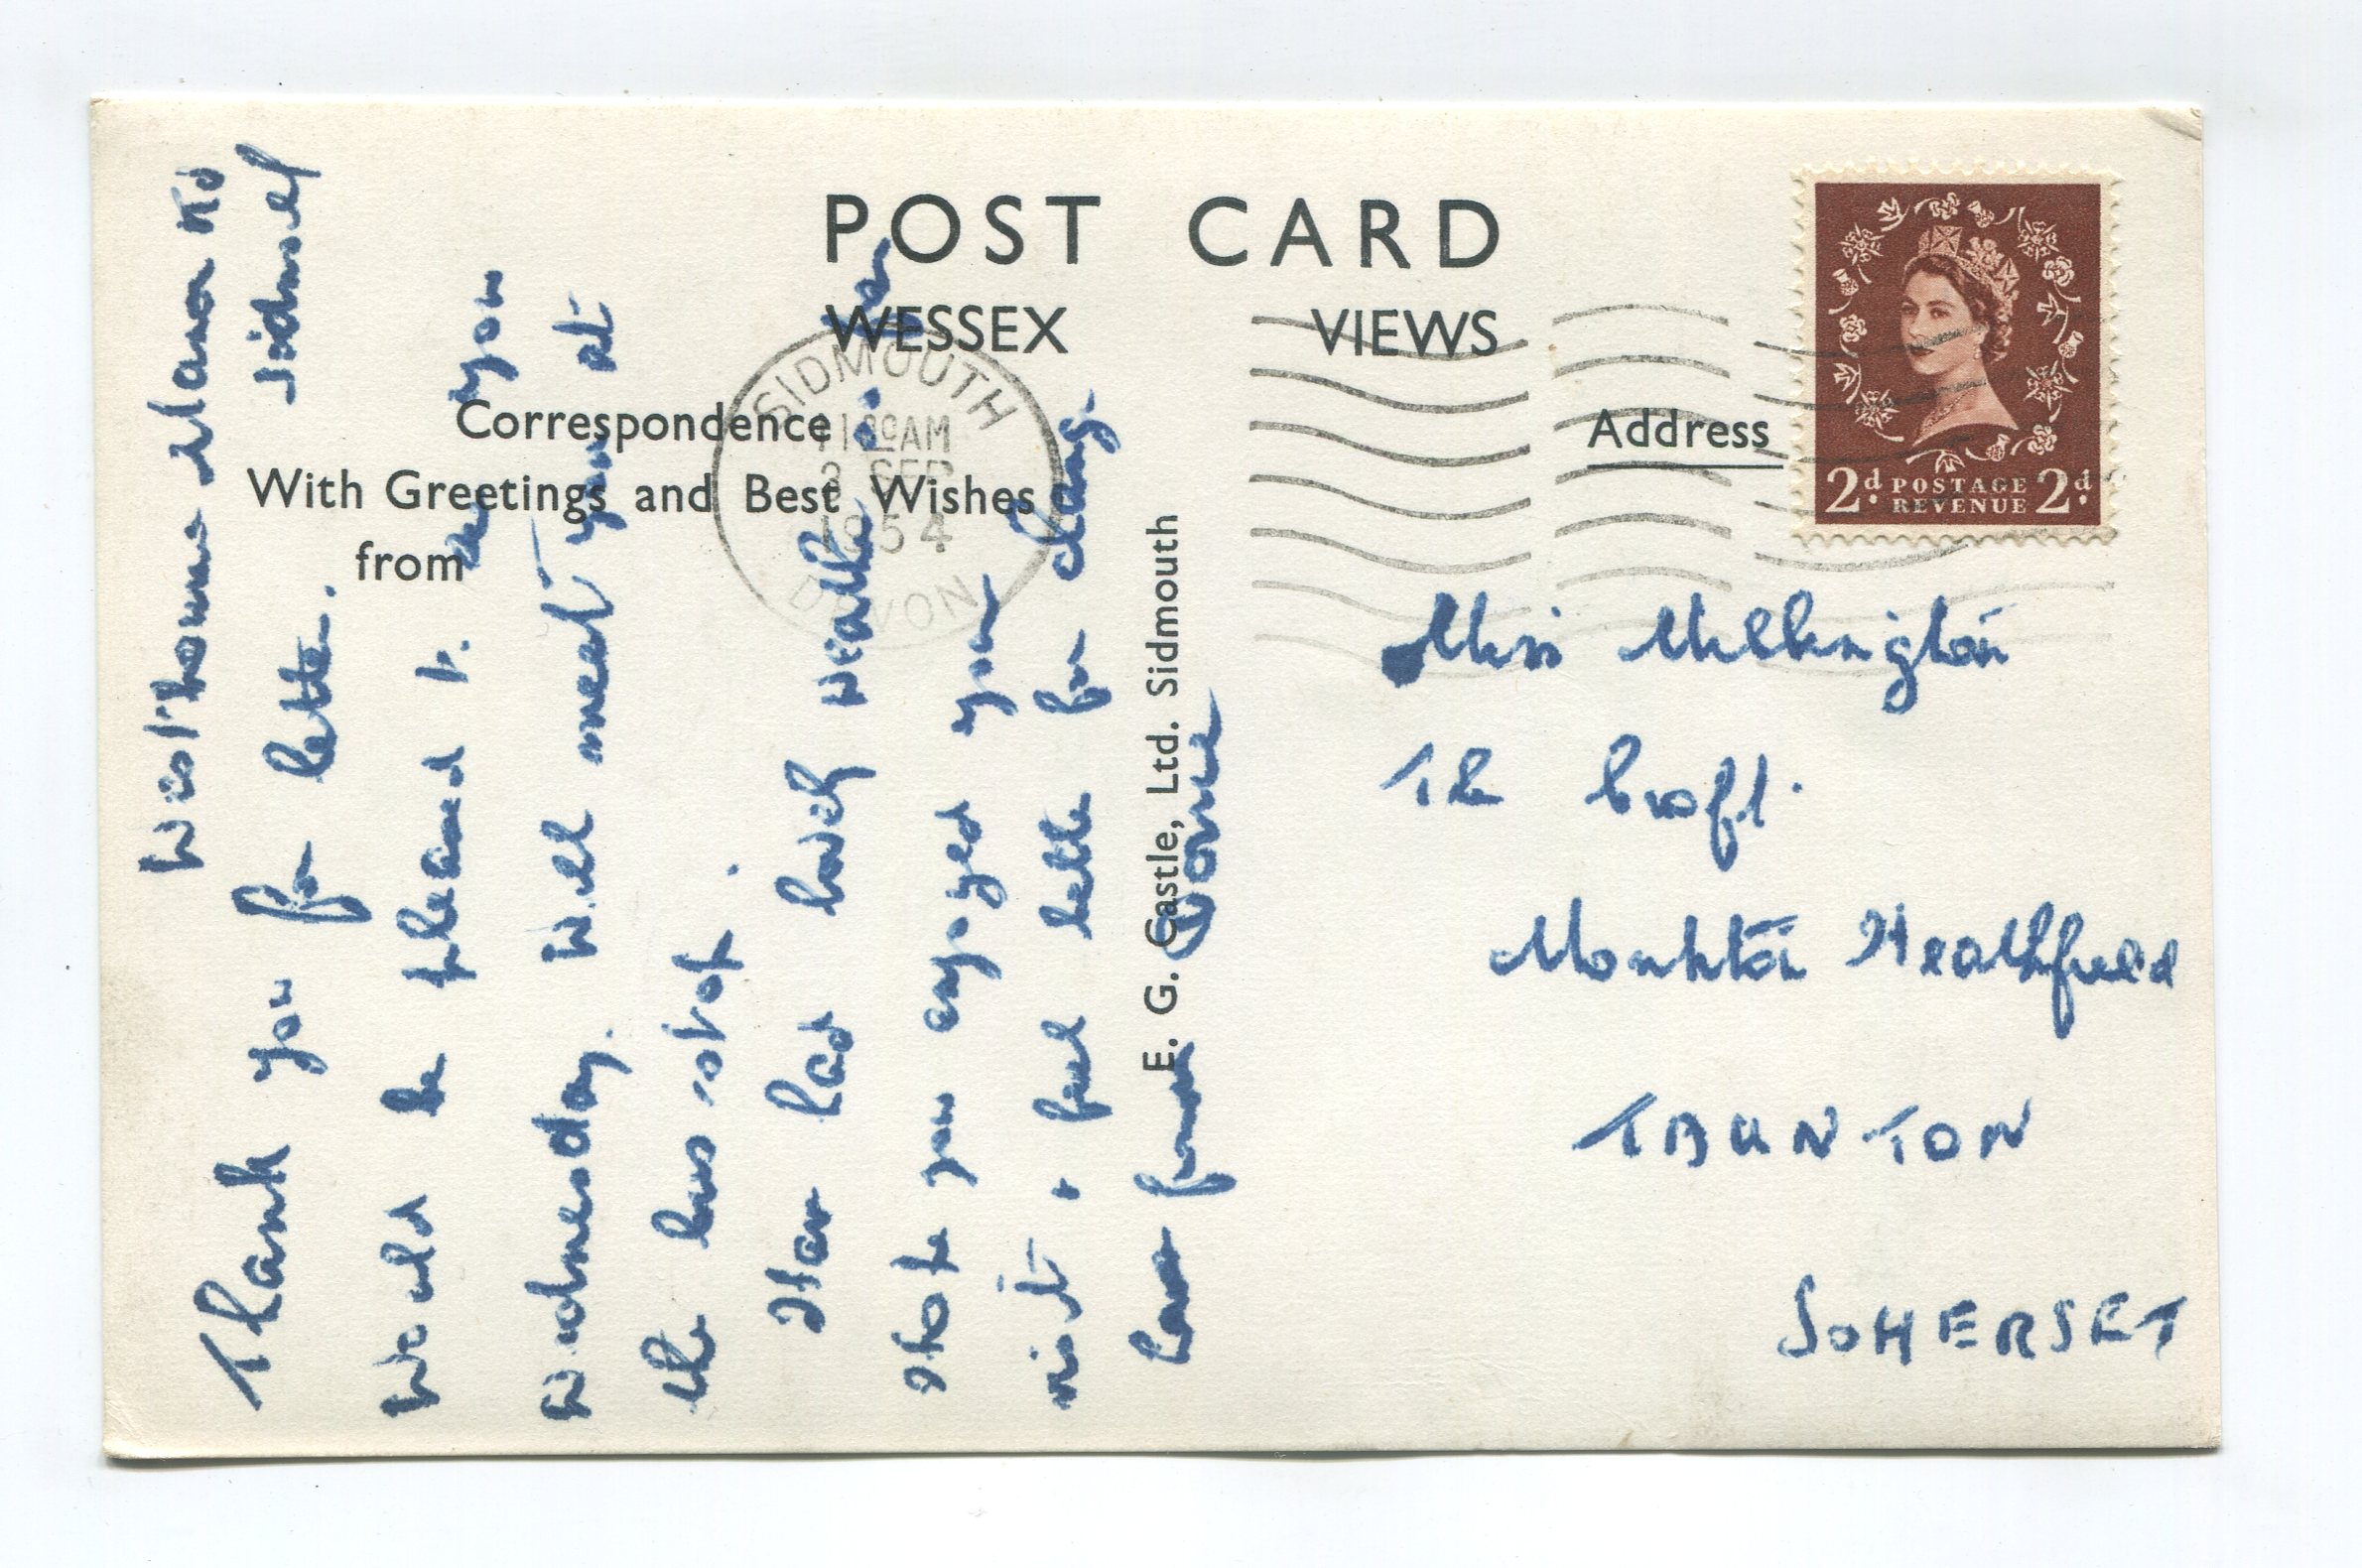 POST CARD
WESSEX VIEWS
Correspondence
Address
With Greetings and Best Wishes
from
SIDMOUTH
AM
SEP
1954
DEVON
2d POSTAGE 2d
REVENUE
E. G. Castle, Ltd. Sidmouth
Manor Rd
Thank you for letter.
Would be pleased to see you
Wednesday. Will meet you at
the bus stop.
Hav had lovely weather
Hope you enjoyed your
visit & feel better for change.
Love from
Miss Millington
The Croft.
Monkton Heathfield
TAUNTON
SOMERSET